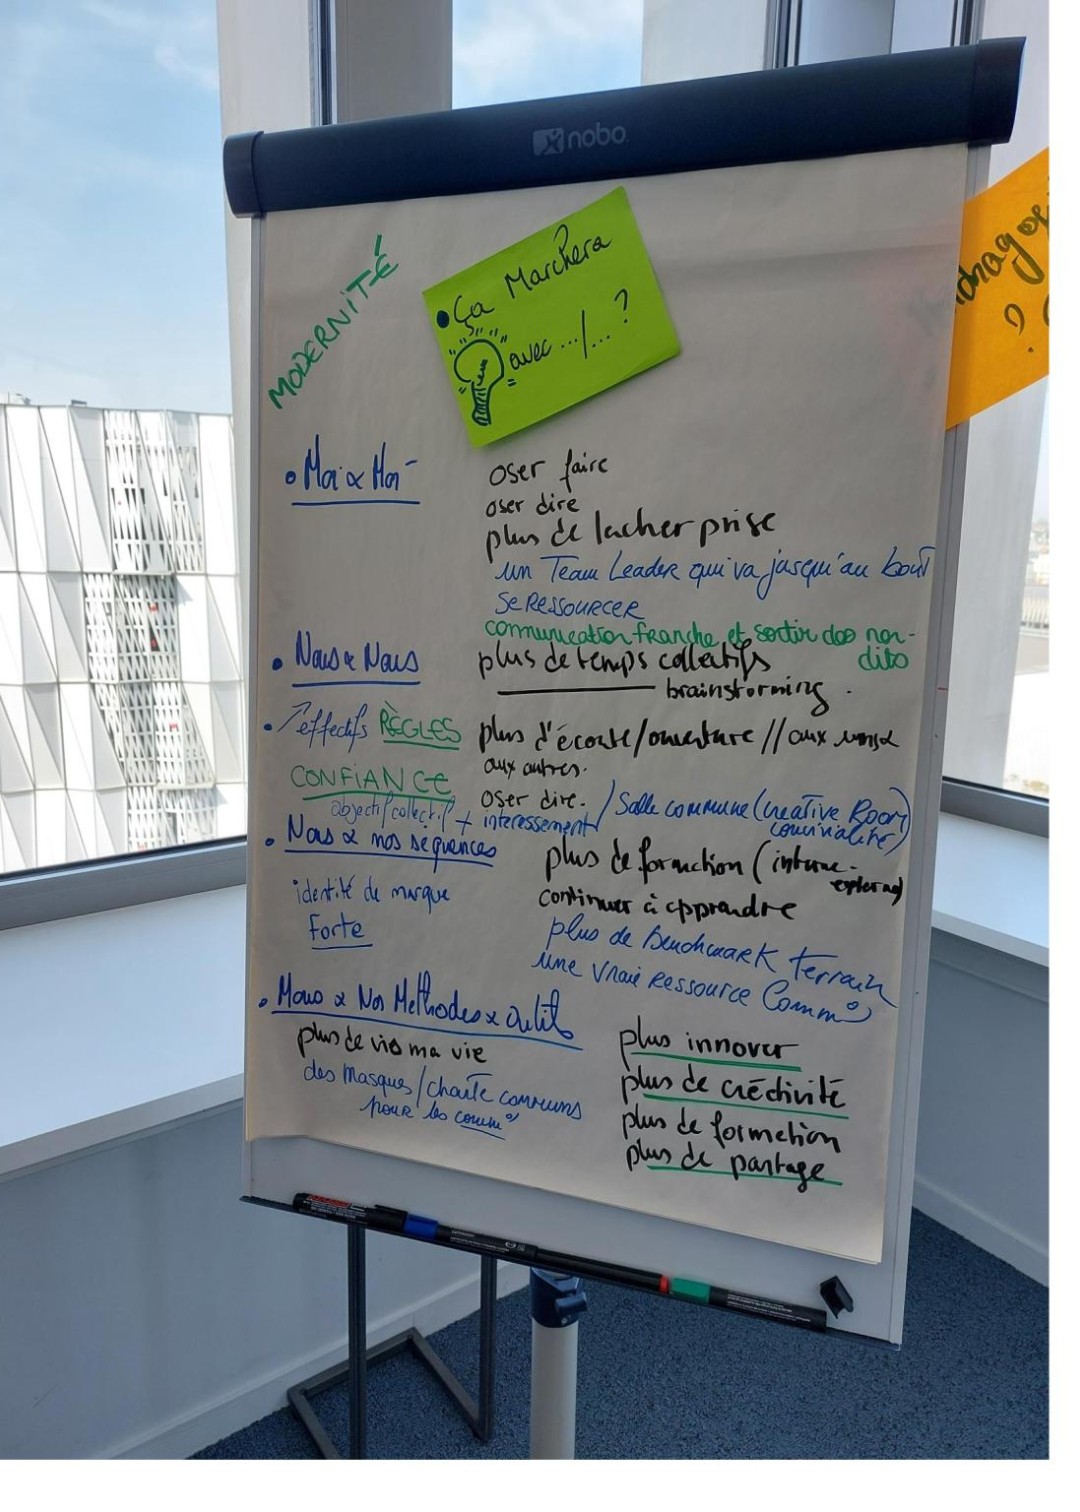 nobo
MODERNITÉ
• Ça Marchera
avec .../... ?
?
• Moi & Moi
oser faire
oser dire
plus de lacher prise
un Team Leader qui va jusqu'au bout
Se RESSOURCER
communication franche et sortir des non-
dits
• Nous & Nous
plus de temps collectifs
brainstorming.
• ↗ effectifs RÈGLES
plus d'écoute/ouverture // aux uns &
aux autres.
CONFIANCE
oser dire. / Salle commune (Creative Room)
convivialité)
objectif collectif + interessement/
• Nous & nos séquences
plus de formation (interne -
externe)
identité de marque
Forte
continuer à apprendre
plus de Benchmark terrain
une vraie ressource Comm°
• Nous & Nos Méthodes & Outils
plus de vis ma vie
des masques / charte communs
pour les comm°
plus innover
plus de créativité
plus de formation
plus de partage